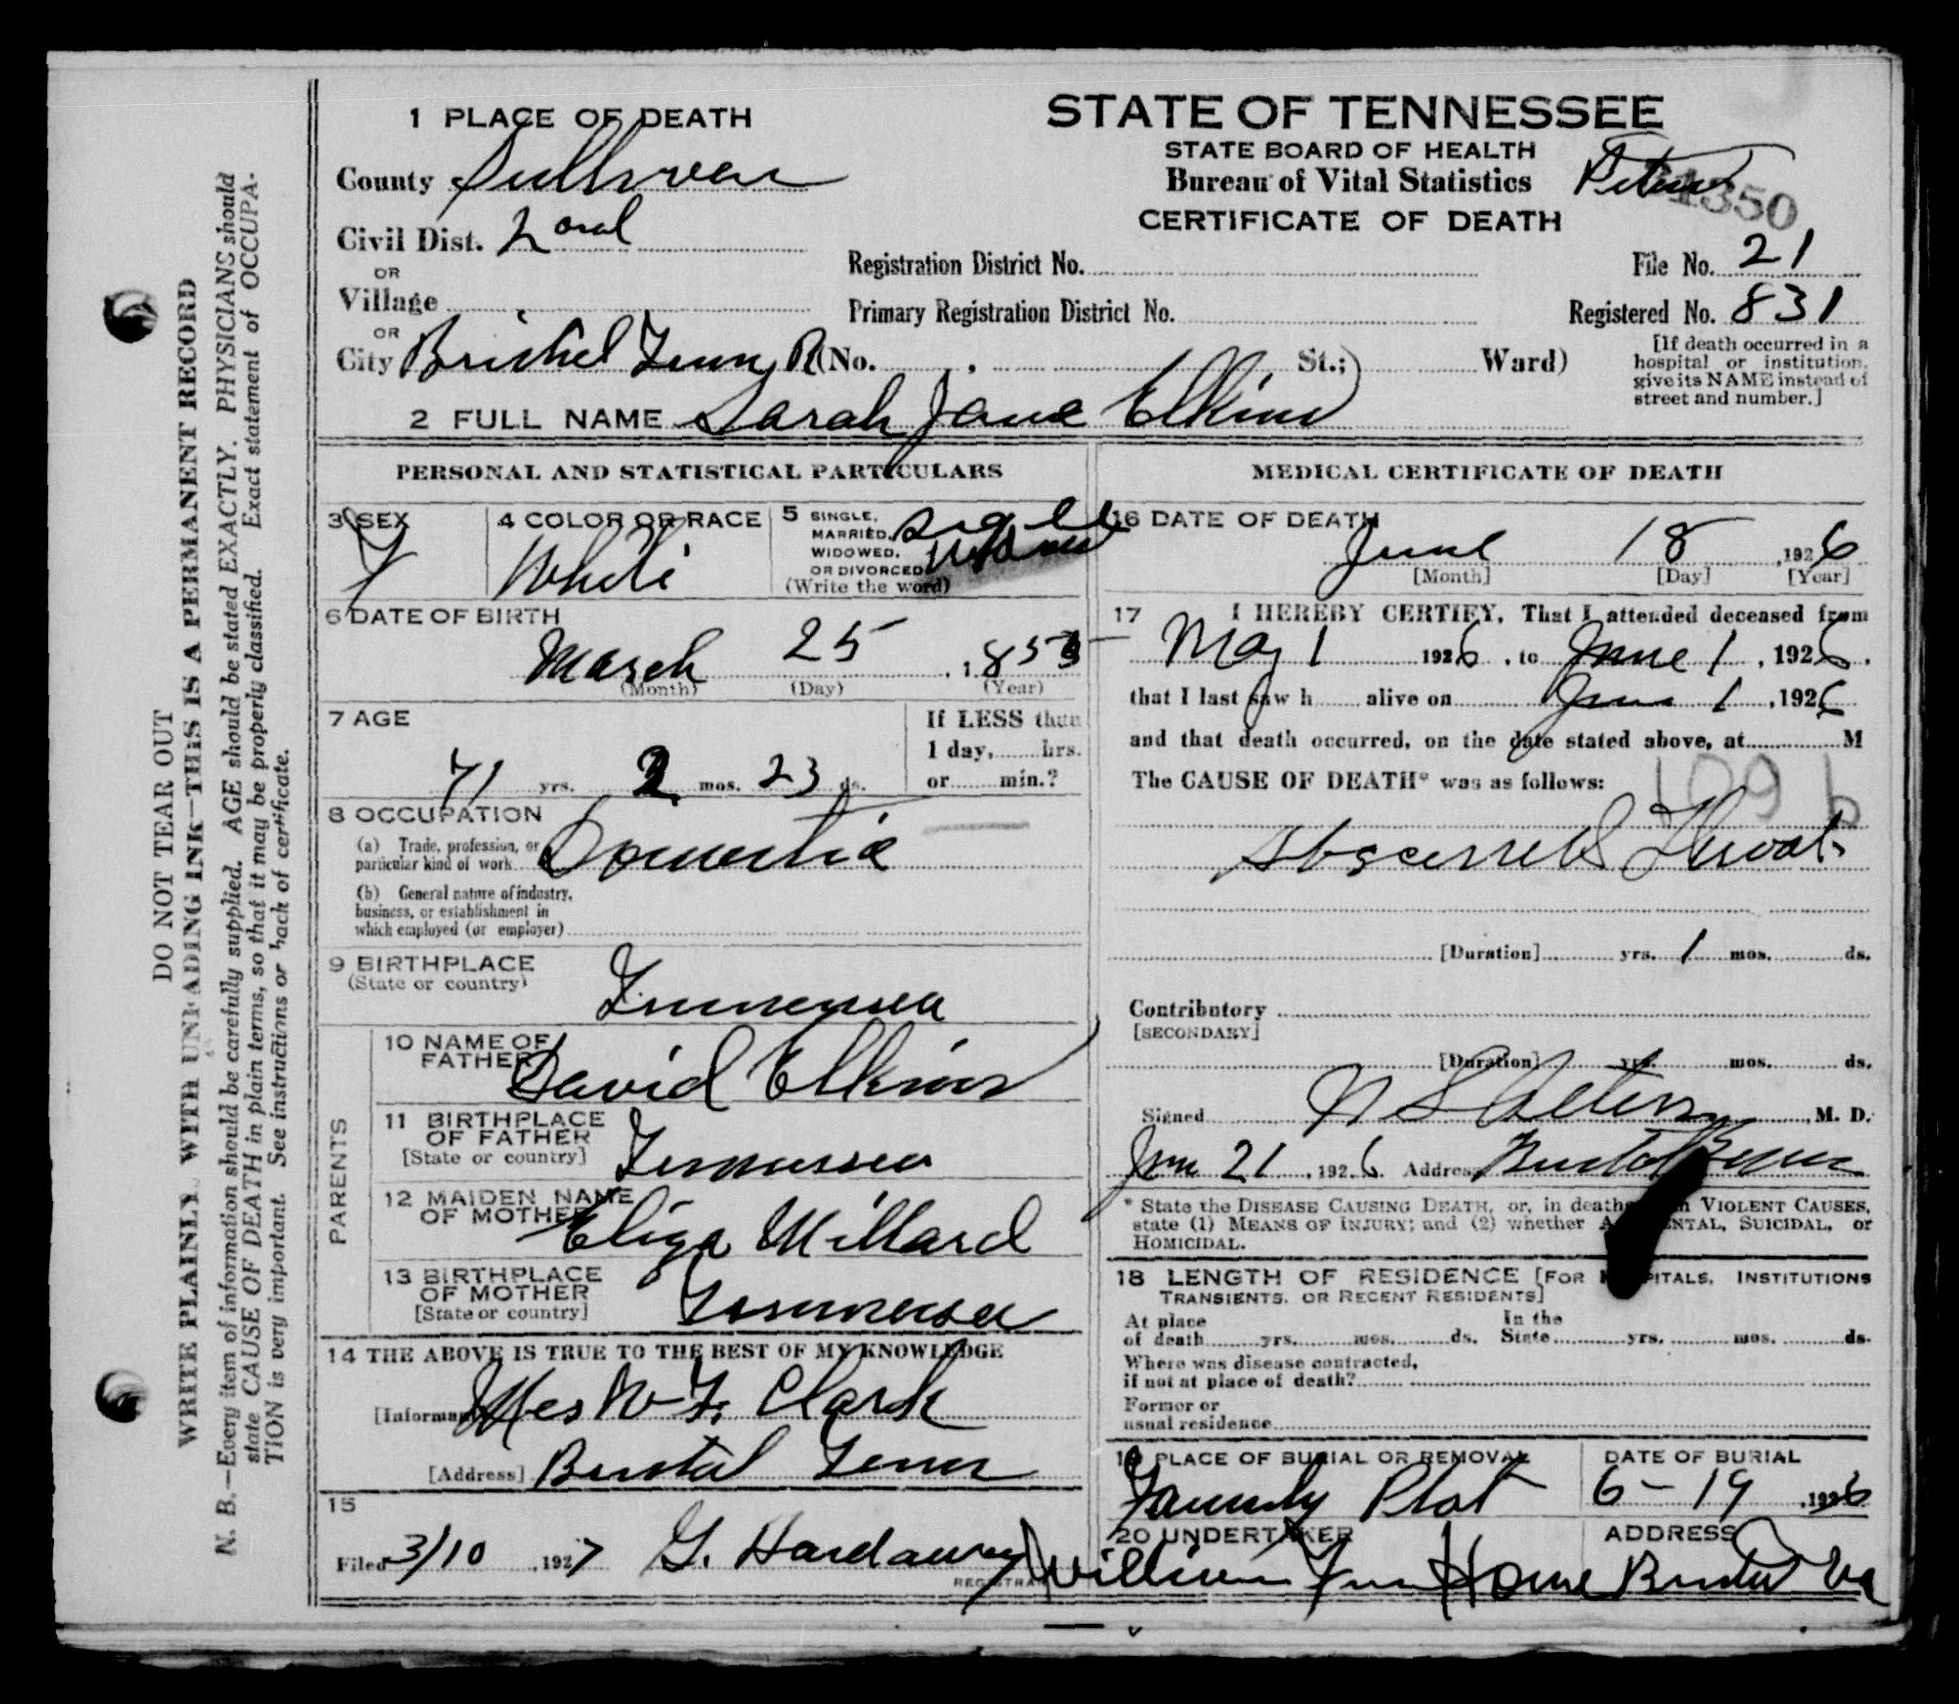 DO NOT TEAR OUT
WRITE PLAINLY, WITH UNFADING INK—THIS IS A PERMANENT RECORD
N. B.—Every item of information should be carefully supplied. AGE should be stated EXACTLY. PHYSICIANS should
state CAUSE OF DEATH in plain terms, so that it may be properly classified. Exact statement of OCCUPA-
TION is very important. See instructions or back of certificate.
1 PLACE OF DEATH
County Sullivan
Civil Dist.
OR
Village
OR
City Bristol Tenn R (No. St.; Ward)
2 FULL NAME Sarah Jane Elkins
STATE OF TENNESSEE
STATE BOARD OF HEALTH
Bureau of Vital Statistics
CERTIFICATE OF DEATH
350
Registration District No.
File No. 21
Primary Registration District No.
Registered No. 831
[If death occurred in a
hospital or institution,
give its NAME instead of
street and number.]
PERSONAL AND STATISTICAL PARTICULARS
3 SEX
F
4 COLOR OR RACE
White
5 SINGLE,
MARRIED,
WIDOWED,
OR DIVORCED
(Write the word)
6 DATE OF BIRTH
March 25, 1855
(Month) (Day) (Year)
7 AGE
71 yrs. 2 mos. 23 ds.
If LESS than
1 day, hrs.
or min.?
8 OCCUPATION
(a) Trade, profession, or
particular kind of work Domestic
(b) General nature of industry,
business, or establishment in
which employed (or employer)
9 BIRTHPLACE
(State or country)
Tennessee
PARENTS
10 NAME OF
FATHER David Elkins
11 BIRTHPLACE
OF FATHER
[State or country] Tennessee
12 MAIDEN NAME
OF MOTHER Eliza Millard
13 BIRTHPLACE
OF MOTHER
[State or country] Tennessee
14 THE ABOVE IS TRUE TO THE BEST OF MY KNOWLEDGE
[Informant] Mrs W. F. Clark
[Address] Bristol Tenn
15
Filed 3/10, 1927 G. Hardaway
REGISTRAR
MEDICAL CERTIFICATE OF DEATH
16 DATE OF DEATH
June 18, 1926
[Month] [Day] [Year]
17 I HEREBY CERTIFY, That I attended deceased from
May 1 1926, to June 1, 1926.
that I last saw h alive on June 1, 1926
and that death occurred, on the date stated above, at M
The CAUSE OF DEATH* was as follows:
Throat
[Duration] yrs. 1 mos. ds.
Contributory
[SECONDARY]
[Duration] yrs. mos. ds.
Signed N S Peters, M. D.
Jun 21, 1926 Address Bristol Tenn
* State the DISEASE CAUSING DEATH, or, in deaths VIOLENT CAUSES,
state (1) MEANS OF INJURY; and (2) whether ACCIDENTAL, SUICIDAL, or
HOMICIDAL.
18 LENGTH OF RESIDENCE [FOR HOSPITALS, INSTITUTIONS
TRANSIENTS, OR RECENT RESIDENTS]
At place
of death yrs. mos. ds.
In the
State yrs. mos. ds.
Where was disease contracted,
if not at place of death?
Former or
usual residence
19 PLACE OF BURIAL OR REMOVAL
Family Plot
DATE OF BURIAL
6-19, 1926
20 UNDERTAKER
ADDRESS
William Fun Home Bristol Va